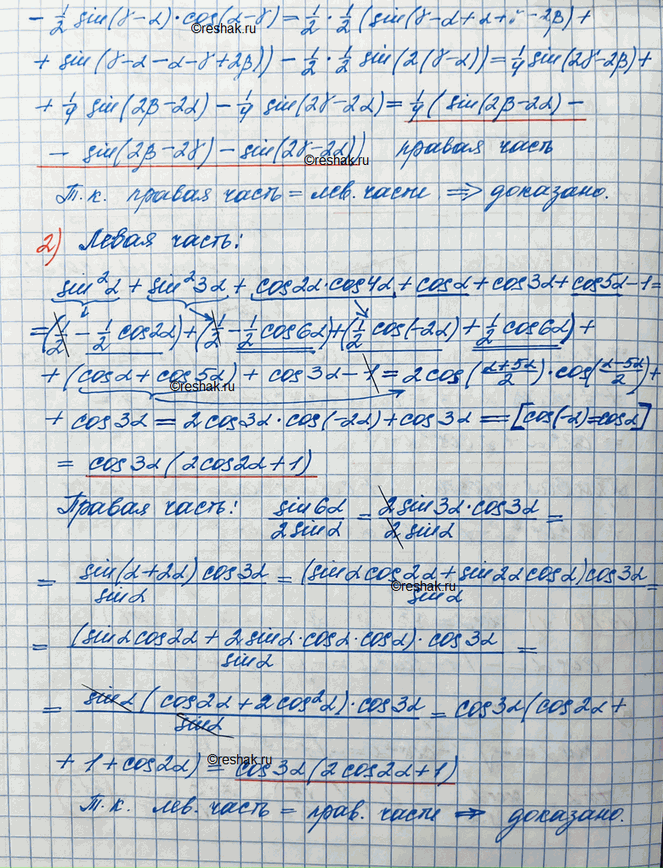 - 1/2 sin(γ-α)·cos(α-γ) = 1/2 · 1/2 (sin(γ-α+α+γ-2β) +
©reshak.ru
+ sin(γ-α-α-γ+2β)) - 1/2 · 1/2 sin(2(γ-α)) = 1/4 sin(2γ-2β) +
+ 1/4 sin(2β-2α) - 1/4 sin(2γ-2α) = 1/4 (sin(2β-2α) -
- sin(2β-2γ) - sin(2γ-2α)) правая часть
©reshak.ru
Т.к. правая часть = лев. части ⇒ доказано.
2) Левая часть:
sin²α + sin²3α + cos2α·cos4α + cosα + cos3α + cos5α - 1 =
= (1/2 - 1/2 cos2α) + (1/2 - 1/2 cos6α) + (1/2 cos(-2α) + 1/2 cos6α) +
+ (cosα + cos5α) + cos3α - 1 = 2cos((α+5α)/2)·cos((α-5α)/2) +
©reshak.ru
+ cos3α = 2cos3α·cos(-2α) + cos3α = [cos(-α)=cosα]
= cos3α(2cos2α+1)
Правая часть: sin6α/2sinα = 2sin3α·cos3α/2sinα =
= sin(α+2α)cos3α/sinα = (sinαcos2α+sin2αcosα)cos3α/sinα =
©reshak.ru
= (sinαcos2α + 2sinα·cosα·cosα)·cos3α/sinα =
= sinα(cos2α+2cos²α)·cos3α/sinα = cos3α(cos2α +
+ 1 + cos2α) = cos3α(2cos2α+1)
©reshak.ru
Т.к. лев. часть = прав. части ⇒ доказано.